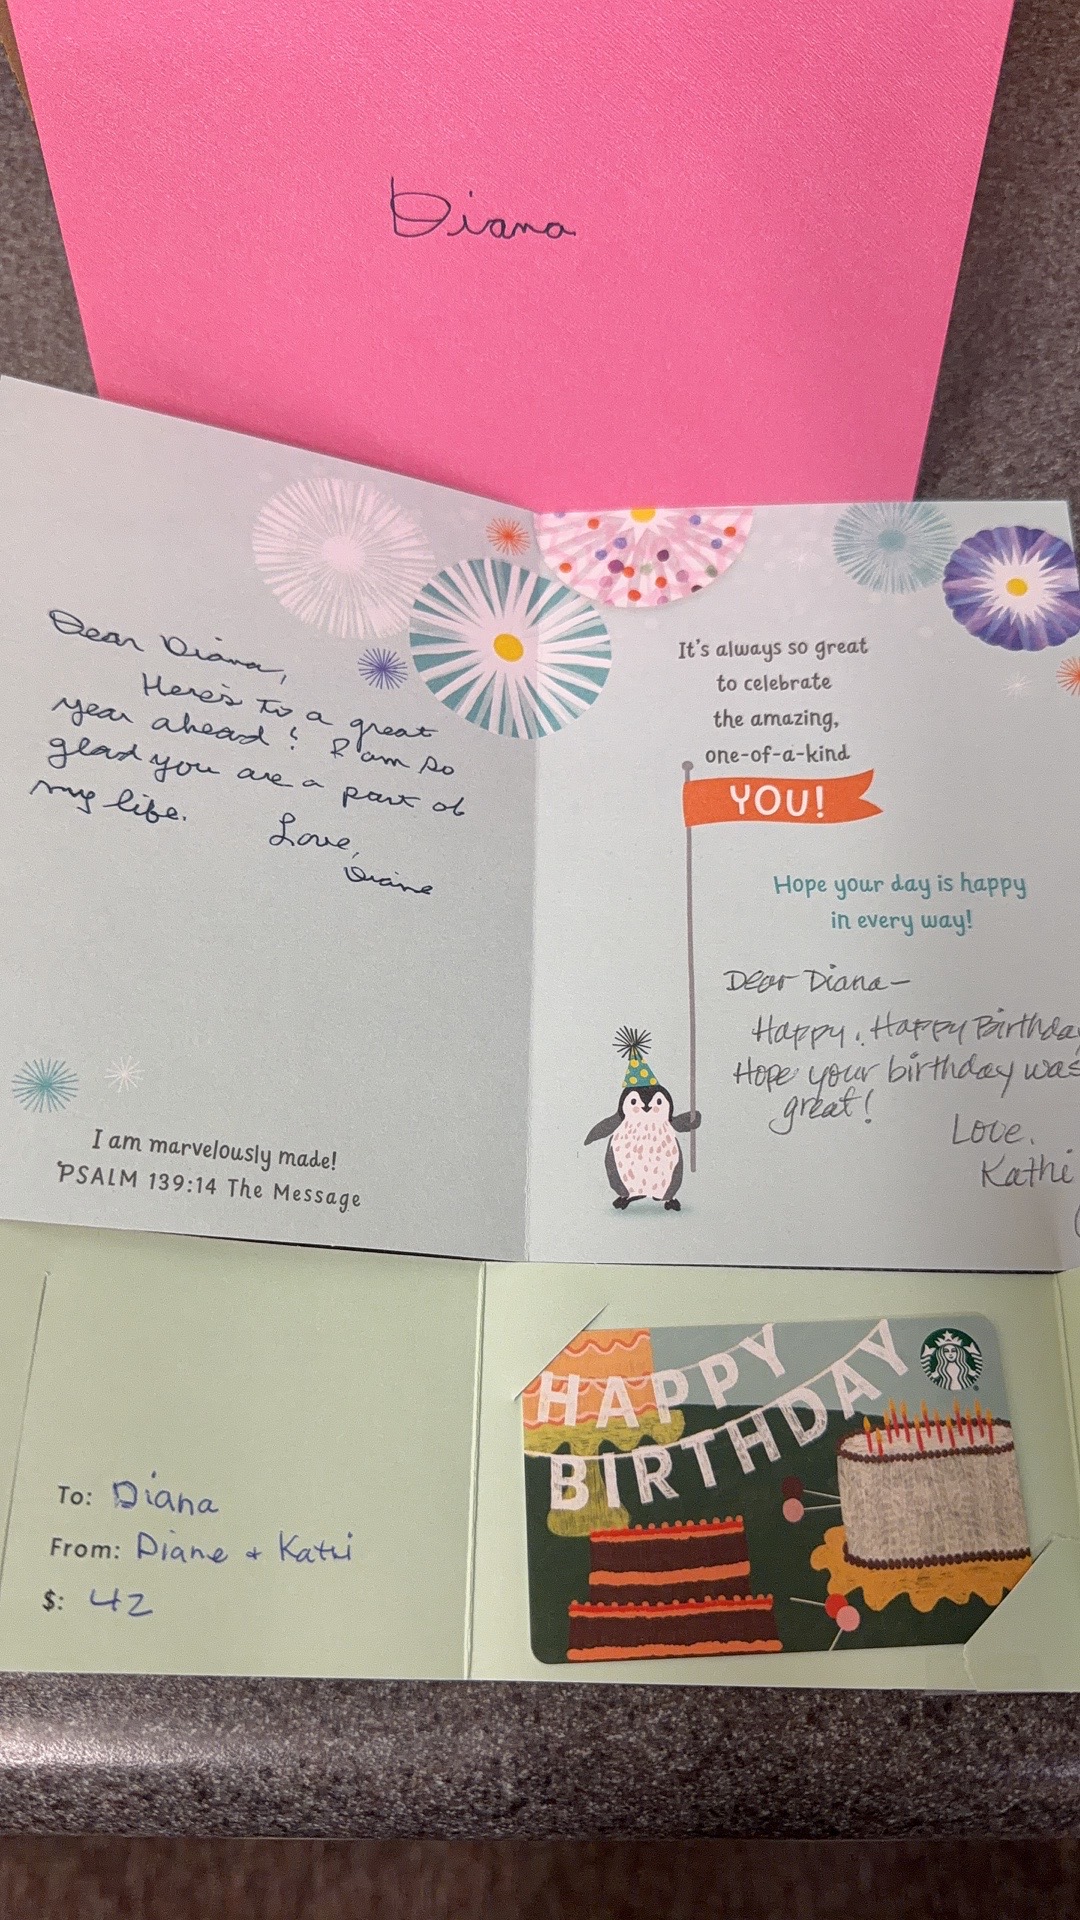 Diana
Dear Diana,
Here's to a great
year ahead! I am so
glad you are a part of
my life.
Love,
Diane
I am marvelously made!
PSALM 139:14 The Message
It's always so great
to celebrate
the amazing,
one-of-a-kind
YOU!
Hope your day is happy
in every way!
Dear Diana—
Happy, Happy Birthday
Hope your birthday was
great!
Love,
Kathi
To: Diana
From: Diane + Kathi
$: 42
HAPPY
BIRTHDAY